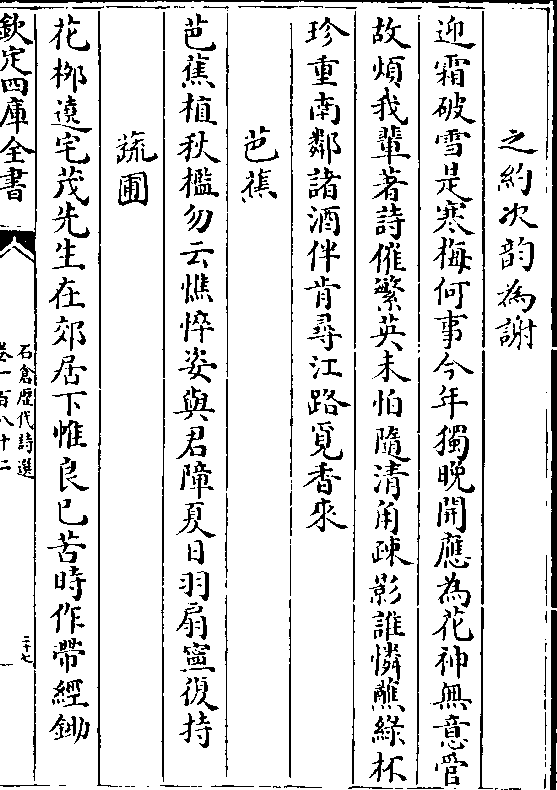 之約次韵為謝
迎霜破雪是寒梅何事今年獨晚開應為花神無意管
故煩我輩著詩催繁英未怕隨清角疎影誰憐蘸綠杯
珍重南鄰諸酒伴肯尋江路覓香來
芭蕉
芭蕉植秋檻勿云憔悴姿與君障夏日羽扇寧復持
蔬圃
花栁遶宅茂先生在郊居下帷良已苦時作帶經鋤
欽定四庫全書
石倉歷代詩選
卷一百八十二
二十七